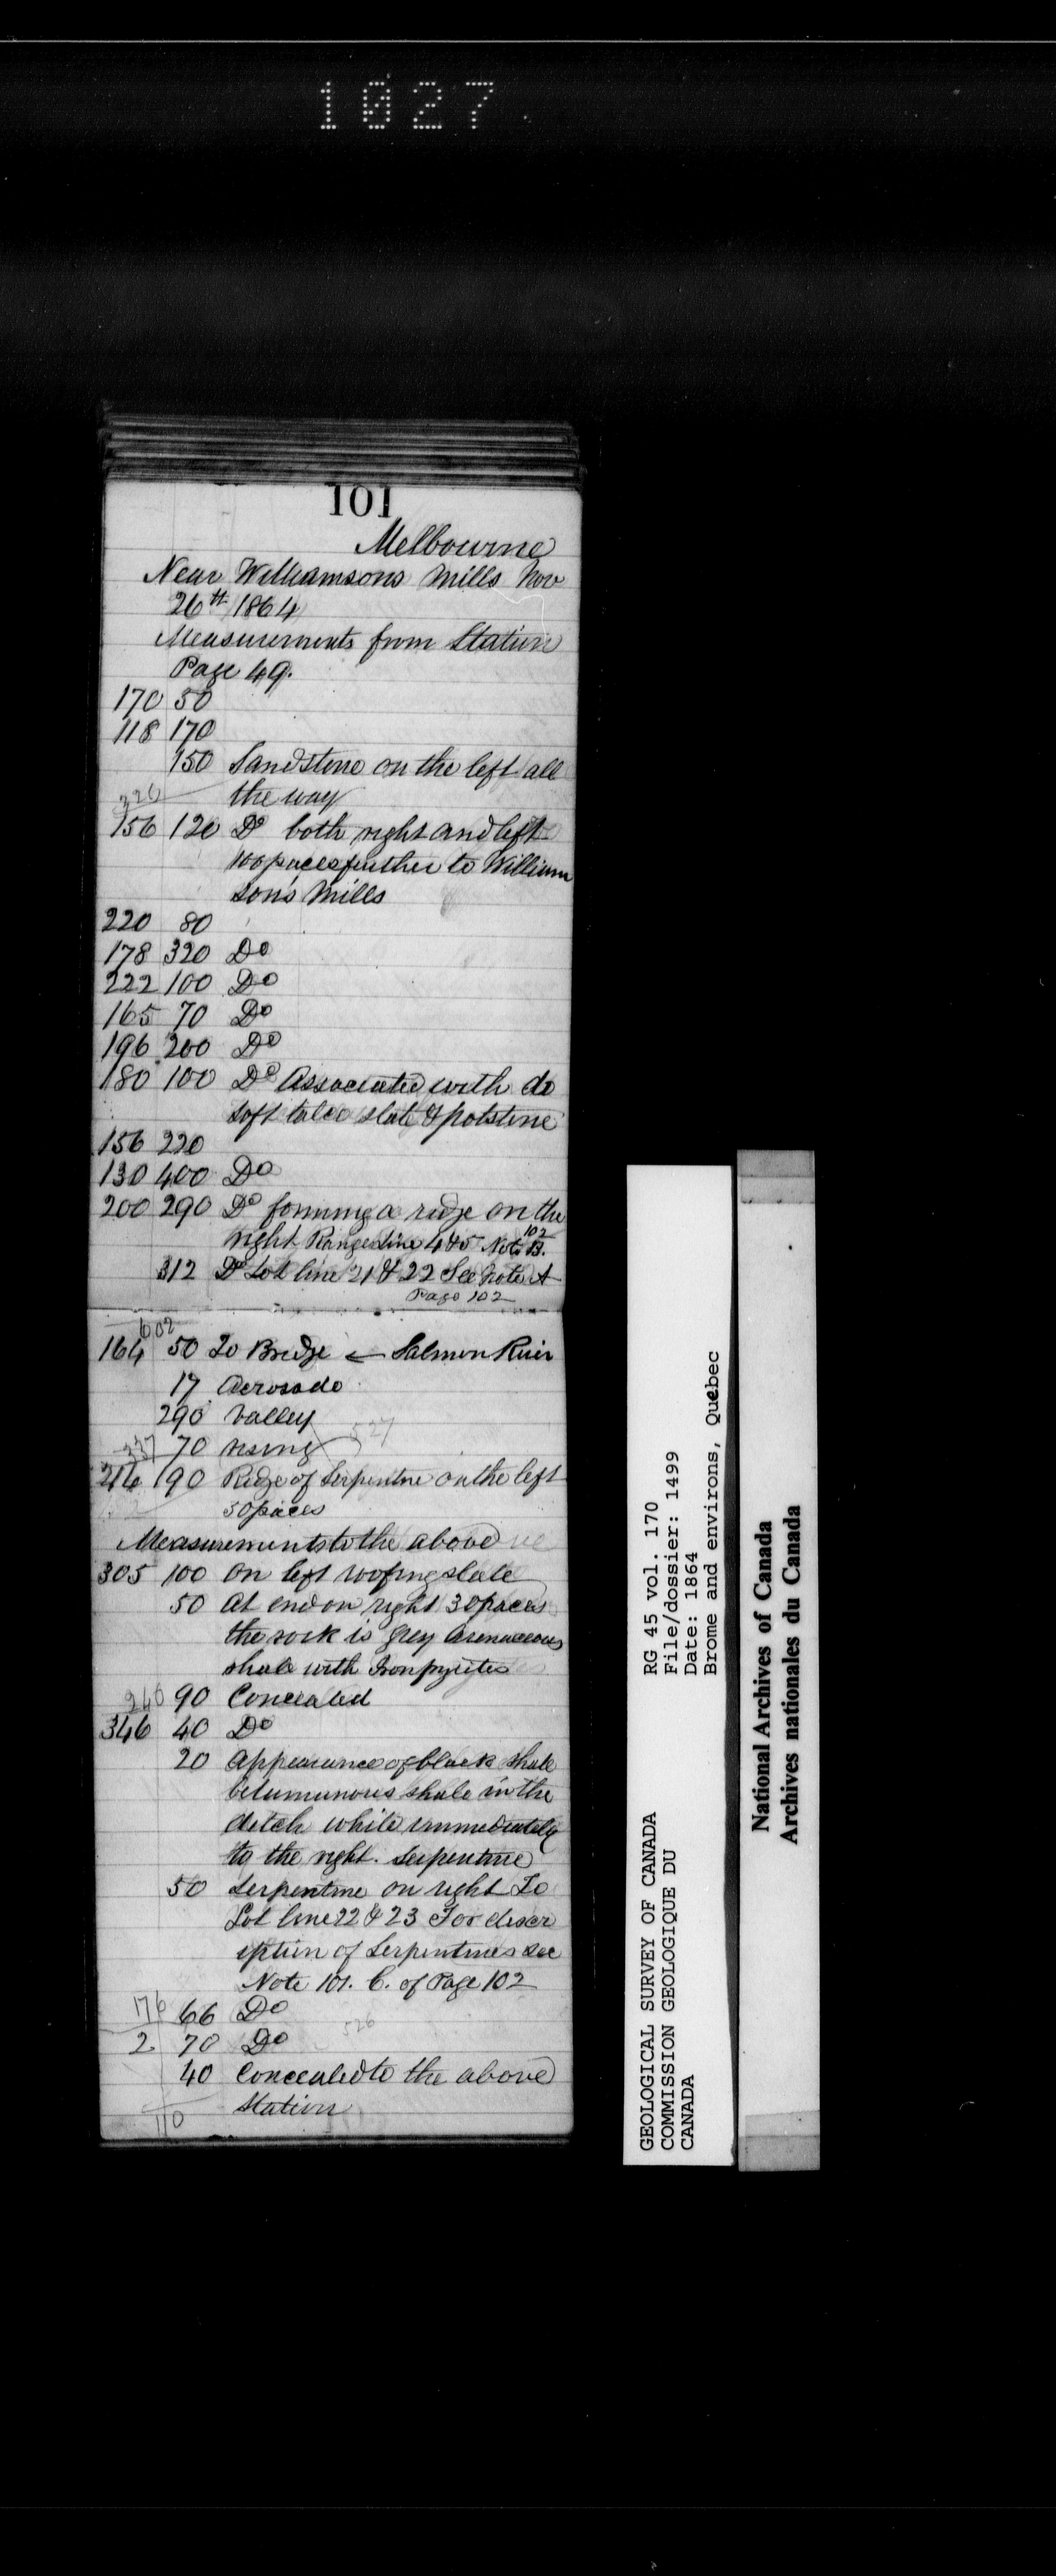 1027
101
Melbourne
Near Williamsons Mills Nov
26th 1864
Measurements from Station
Page 49.
170 50
118 170
150 Sandstone on the left all
326 the way
156 120 Do both right and left
100 paces further to William
sons Mills
220 80
178 320 Do
222 100 Do
165 70 Do
196 200 Do
180 100 Do Associated with do
soft talco slate & potstone
156 220
130 400 Do
200 290 Do forming a ridge on the
right Range Line 4 & 5 Note 102 B.
312 Do Lot line 21 & 22 See Note A
Page 102
602
164 50 To Bridge ← Salmon River
17 Across do
290 Valley
337 70 rising 527
214 190 Ridge of Serpentine on the left
50 paces
Measurements to the above
305 100 On left roofing slate
50 At end on right 30 paces
the rock is grey Arenaceous
shale with Iron pyrites
240 90 Concealed
346 40 Do
20 Appearance of black shale
bitumunous shale in the
ditch while immediately
to the right. Serpentine
50 Serpentine on right To
Lot line 22 & 23 For descr
iption of Serpentines see
Note 101. C. of Page 102
176 66 Do
526
2 70 Do
40 Concealed to the above
Station
110
GEOLOGICAL SURVEY OF CANADA
COMMISSION GEOLOGIQUE DU
CANADA
RG 45 vol. 170
File/dossier: 1499
Date: 1864
Brome and environs, Quebec
National Archives of Canada
Archives nationales du Canada